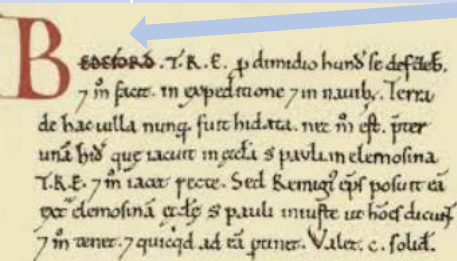 BEDEFORD. T.R.E. ꝑ dimidio hund se defdeb̄.
⁊ m̊ facit. in expeditione ⁊ in nauibꝫ. Terra
de hac uilla nunq̄. fuit hidata. nec m̊ est. p̄ter
unā hid̄ que iacuit in æccła S PAVLI in elemosina
T.R.E. ⁊ m̊ iacet recte. Sed Remigꝰ ep̄s posuit eā
ext̄ elemosinā æccłę S pauli iniuste ut hōēs dicunt̄
⁊ m̊ tenet. ⁊ quicq̇d ad eā ꝑtinet. Valet. c. solid̄.